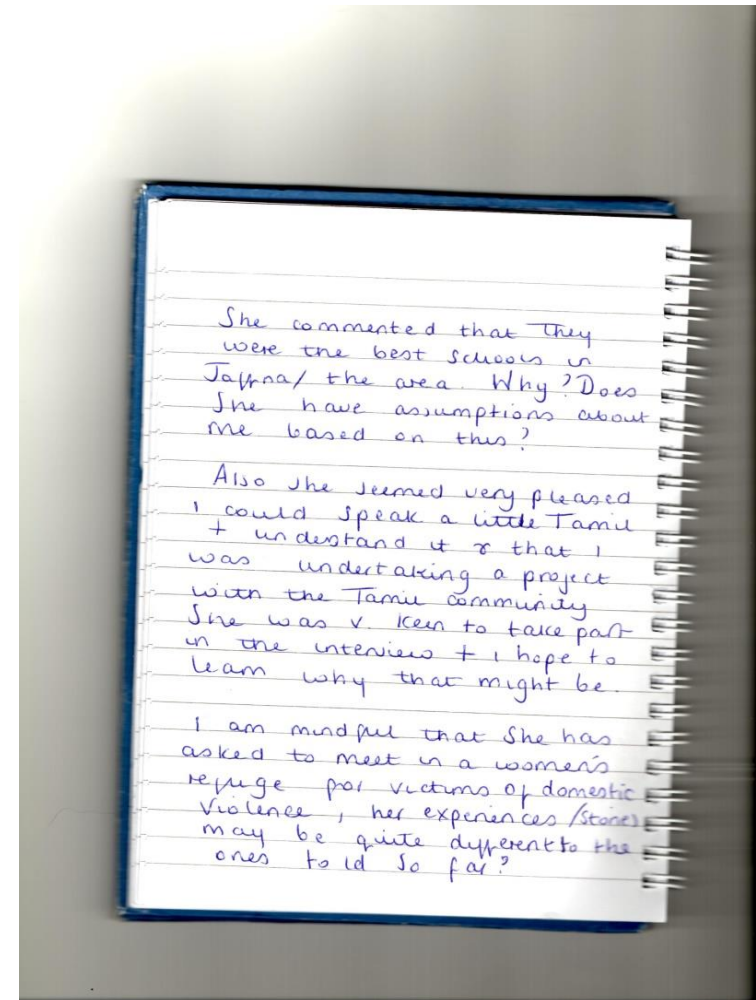 She commented that They
were the best schools in
Jaffna/ the area. Why? Does
She have assumptions about
me based on this?
Also she seemed very pleased
I could speak a little Tamil
+ understand it & that I
was undertaking a project
with the Tamil community
She was v. keen to take part
in the interview + I hope to
learn why that might be.
I am mindful that She has
asked to meet in a women's
refuge for victims of domestic
violence, her experiences /stories
may be quite different to the
ones told so far?